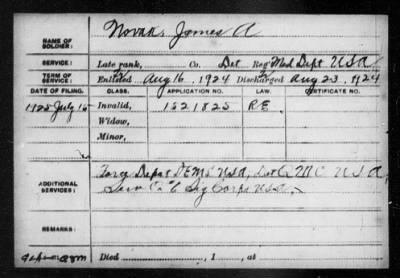 NAME OF SOLDIER: Novak, James A
SERVICE: Late rank, Co. Det Reg Med Dept USA
TERM OF SERVICE: Enlisted Aug 16, 1924 Discharged Aug 23, 1924
DATE OF FILING. CLASS. APPLICATION NO. LAW. CERTIFICATE NO.
1925 July 15 Invalid, 1521825 RE
Widow,
Minor,
ADDITIONAL SERVICES: Depot USA, Det Q M C U S A,
Serv Co "C" Sig Corps USA.
REMARKS:
Died , 1 , at